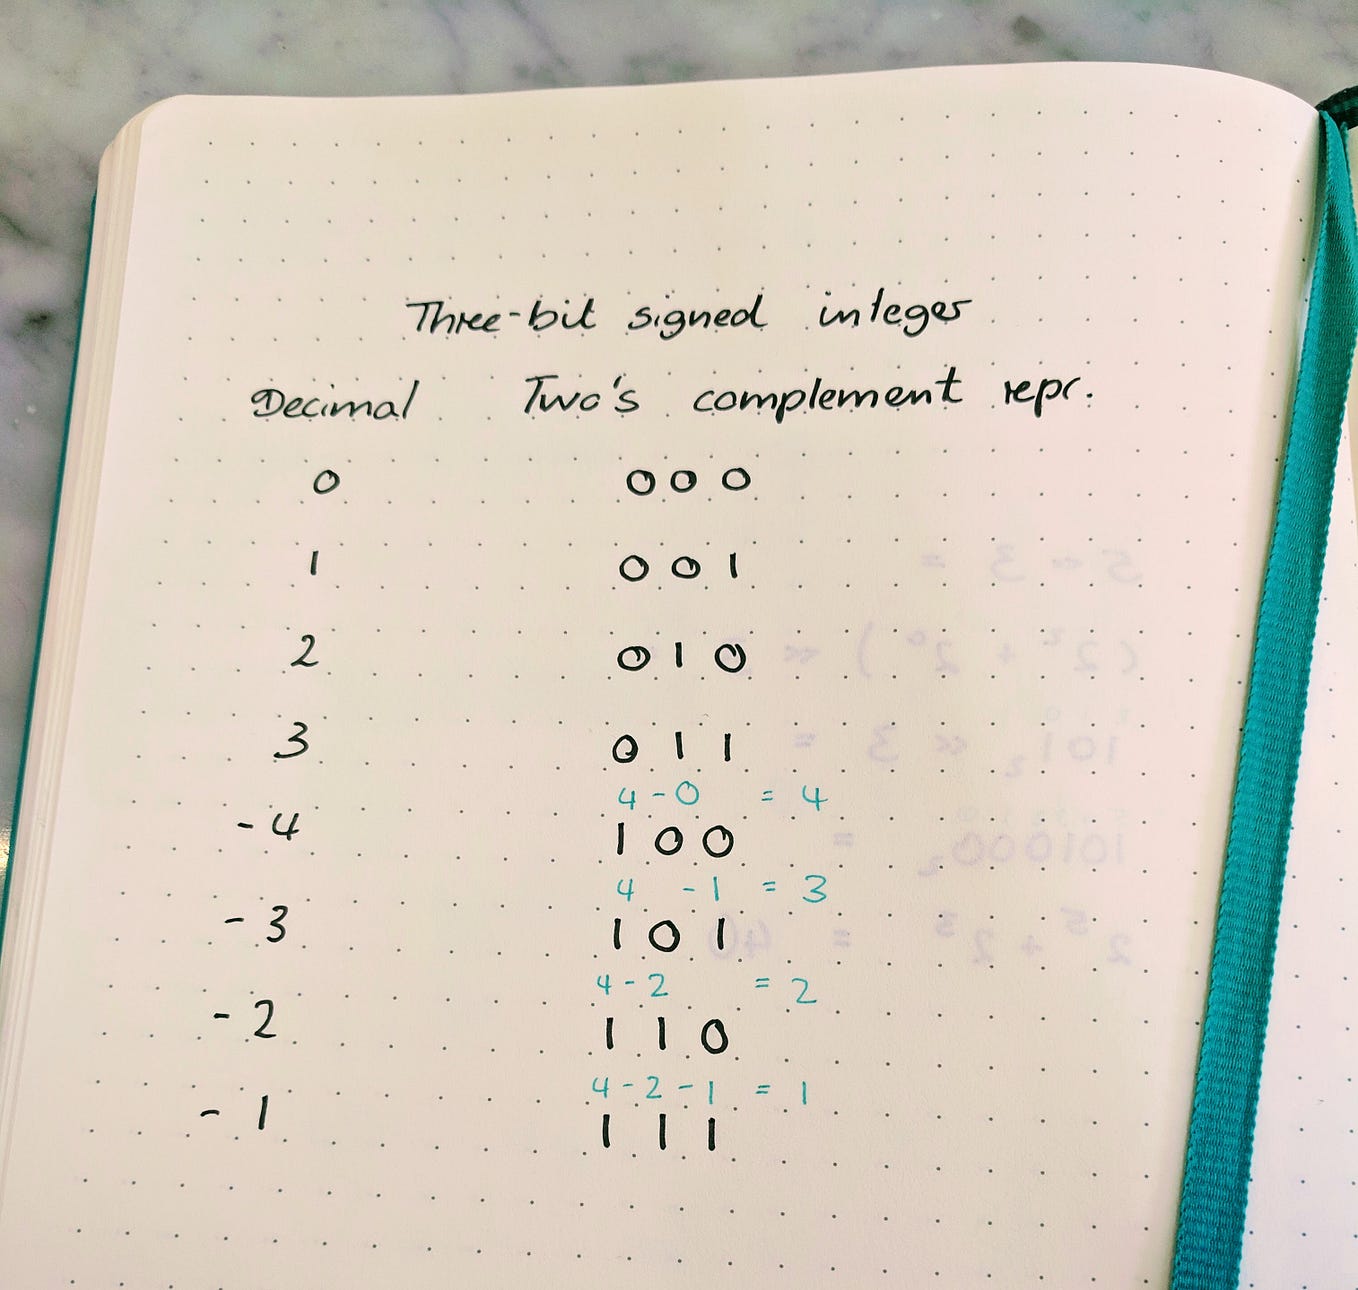 Three-bit signed integer
Decimal Two's complement repr.
0 000
1 001
2 010
3 011
4 - 0 = 4
-4 100
4 - 1 = 3
-3 101
4 - 2 = 2
-2 110
4 - 2 - 1 = 1
-1 111